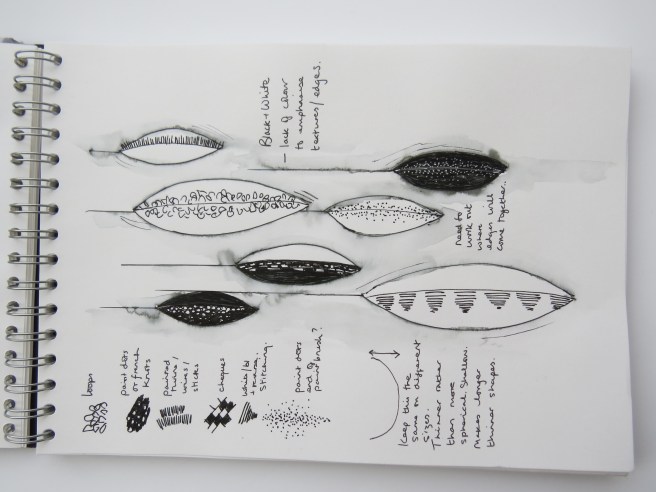 Black + White
— lack of colour
to emphasise
textures / edges.
need to
work out
where
edges will
come together.
loops
paint dots
or french
knots
painted
twine /
wires /
sticks
cheques
stitching.
paint dots
end of
paintbrush?
Keep this the
same on different
sizes.
Thinner rather
than more
spherical shallow.
Makes longer
thinner shapes.